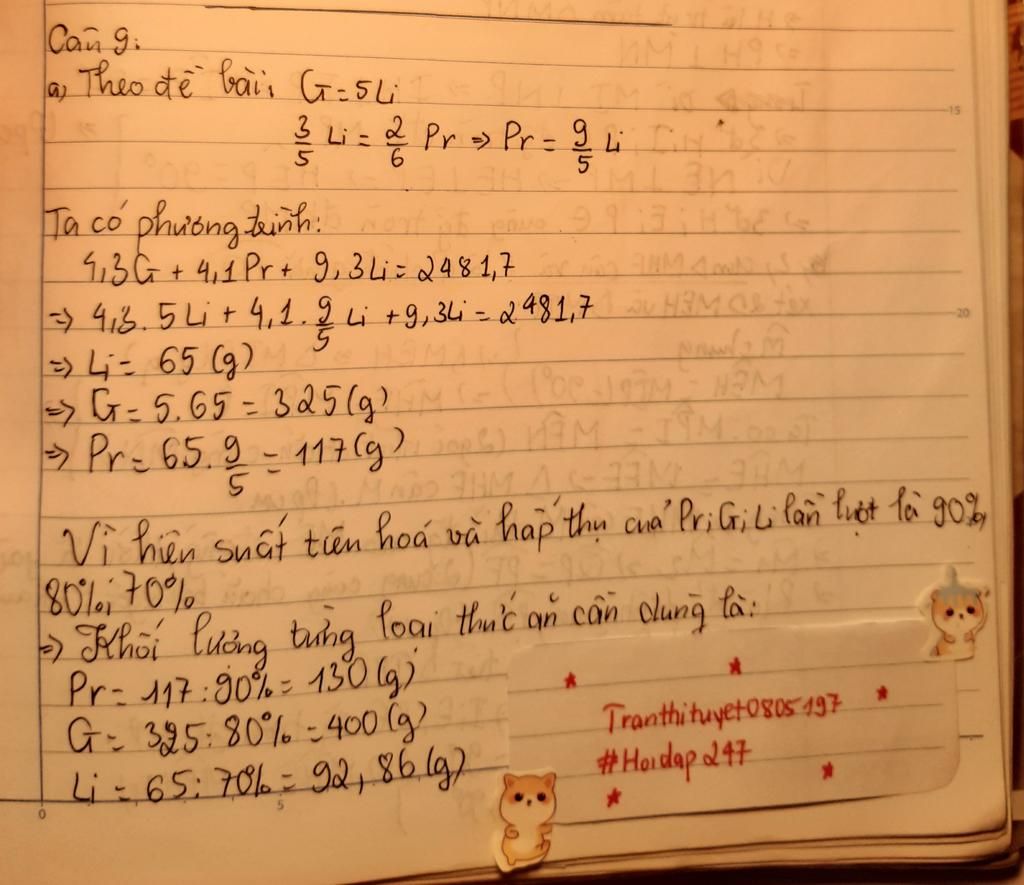 Câu 9:
a, Theo đề bài: G = 5Li
3/5 Li = 2/6 Pr => Pr = 9/5 Li
Ta có phương trình:
4,3G + 4,1Pr + 9,3Li = 2481,7
=> 4,3. 5Li + 4,1. 9/5 Li + 9,3Li = 2481,7
=> Li = 65 (g)
=> G = 5.65 = 325(g)
=> Pr = 65. 9/5 = 117(g)
Vì hiện suất tiên hoá và hấp thụ của Pr; G; Li lần lượt là 90%,
80%; 70%
=> Khối lương từng loại thức ăn cần dung là:
Pr = 117 : 90% = 130 (g)
G = 325 : 80% = 400 (g)
Li = 65 : 70% = 92, 86 (g)
Tranthituyet0805197
#Hoidap247
15
20
0
5